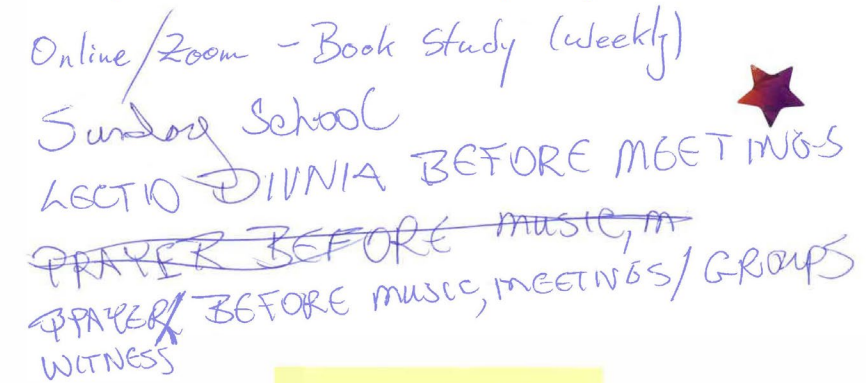 Online/Zoom - Book Study (weekly)
Sunday School
LECTIO DIVNIA BEFORE MEETINGS
PRAYER BEFORE MUSIC, M
PRAYER/ BEFORE MUSIC, MEETINGS/GROUPS
WITNESS